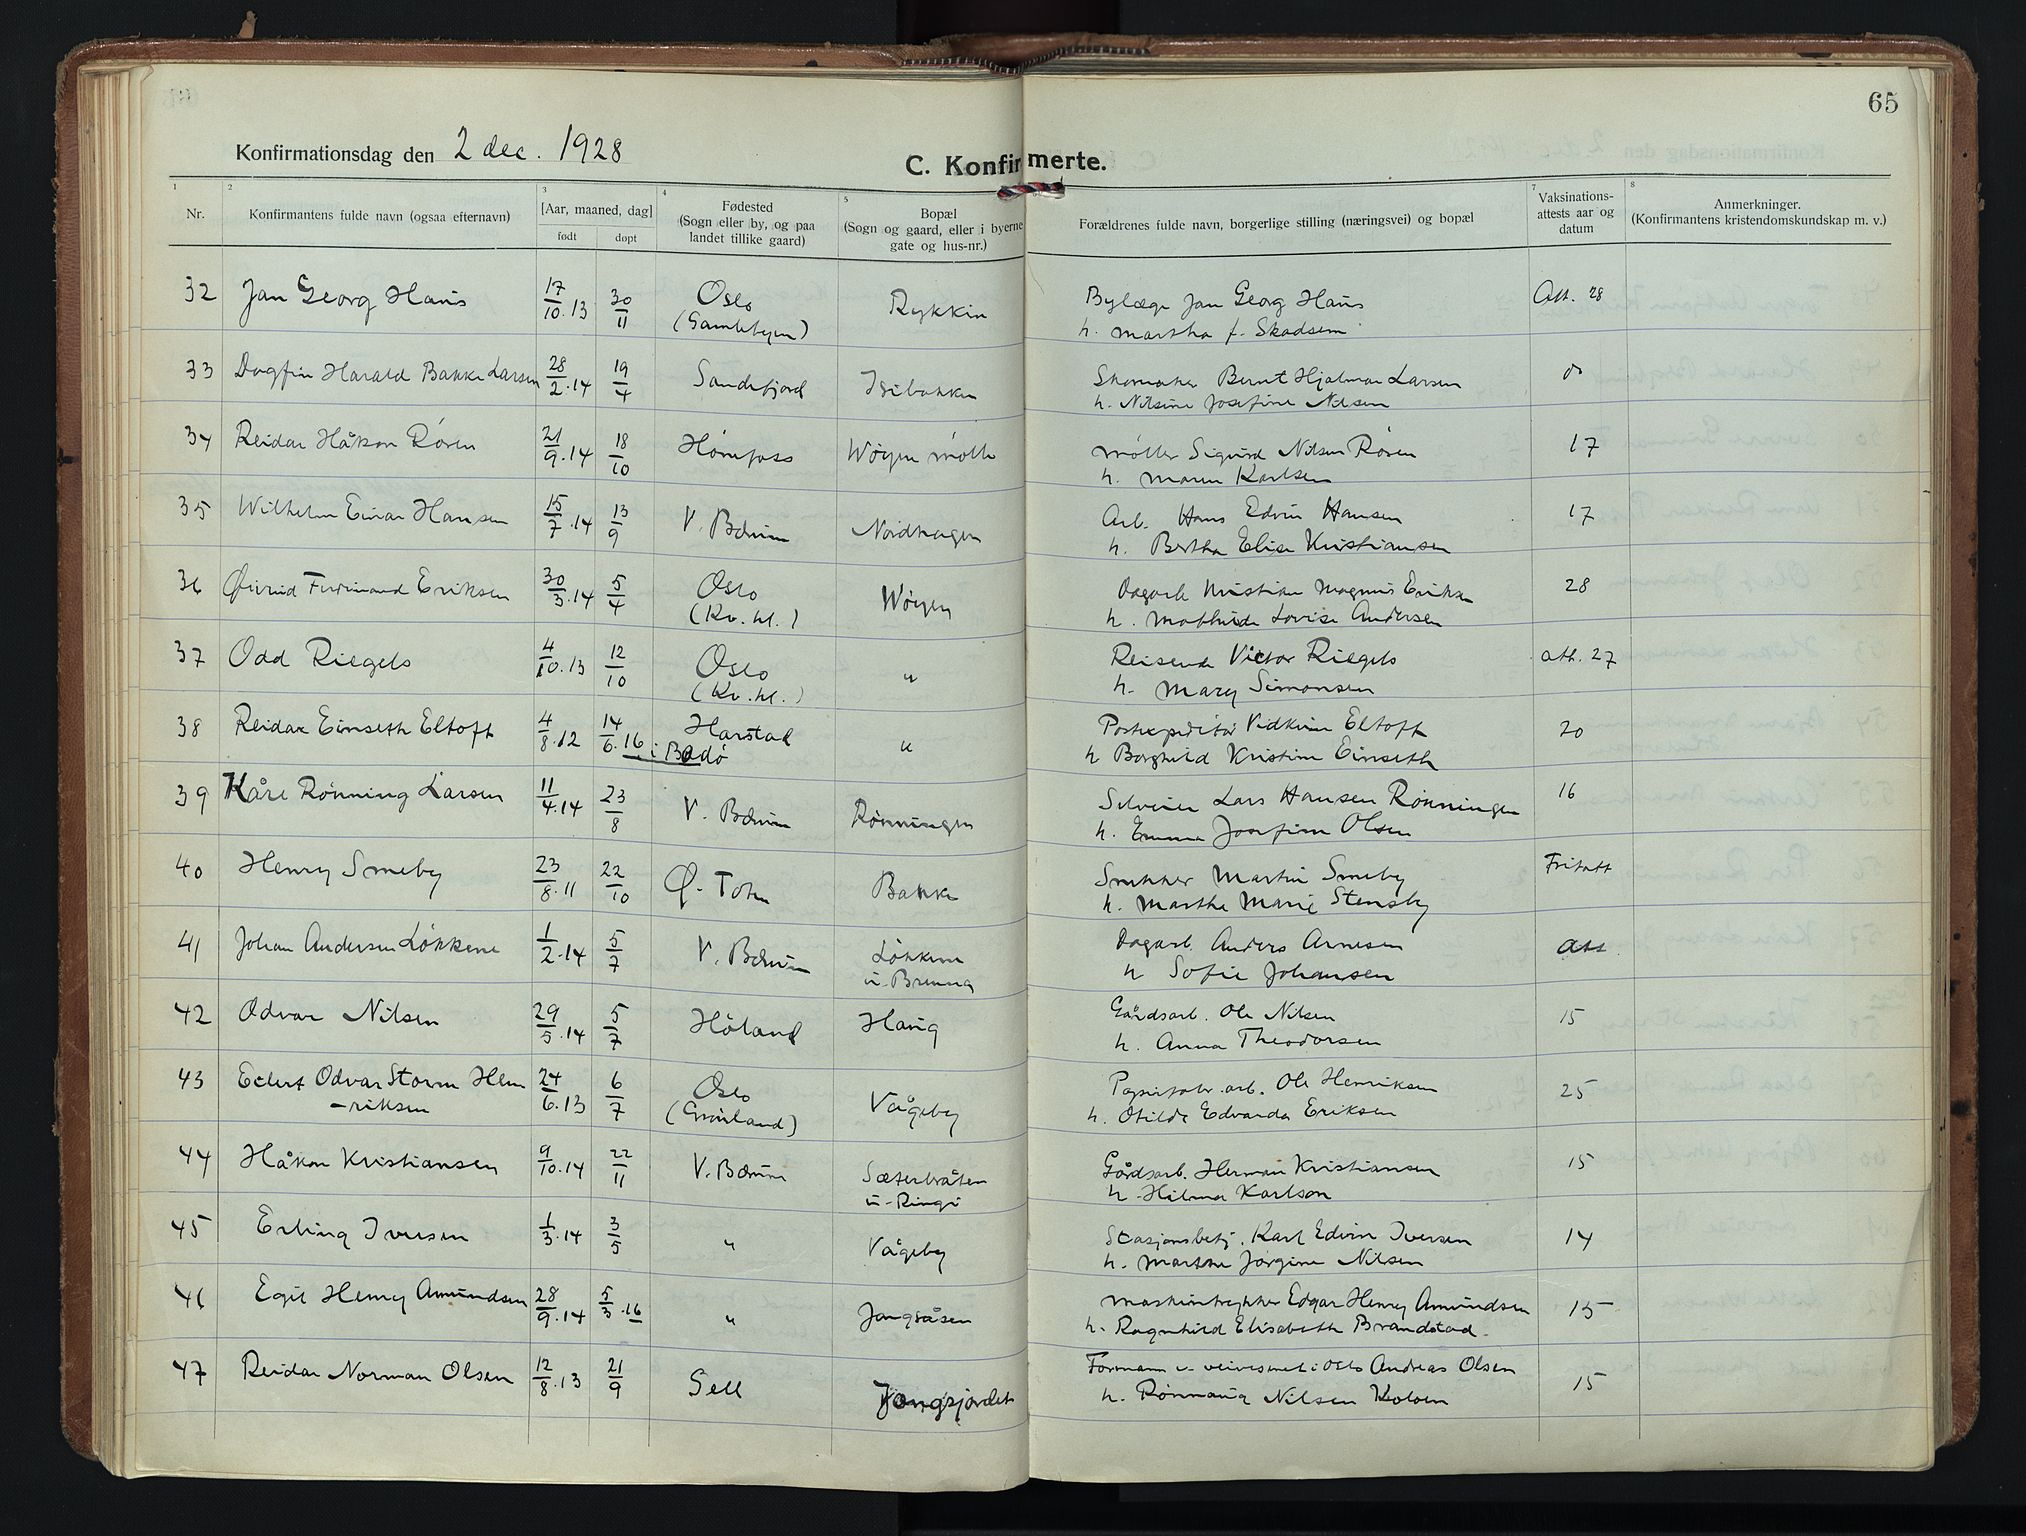 65
Konfirmationsdag den 2 dec. 1928
C. Konfirmerte.
1 2 3 4 5 7 8
Nr. Konfirmantens fulde navn (ogsaa efternavn) [Aar, maaned, dag] født døpt Fødested (Sogn eller by, og paa landet tillike gaard) Bopæl (Sogn og gaard, eller i byerne gate og hus-nr.) Forældrenes fulde navn, borgerlige stilling (næringsvei) og bopæl Vaksinations-attests aar og datum Anmerkninger. (Konfirmantens kristendomskundskap m. v.)
32 Jan Georg Haus 17/10.13 30/11 Oslo Rykkin Bylæge Jan Georg Haus Att. 28
(Gamlebyen) h. Martha f. Skadsem
33 Dagfin Harald Bakke Larsen 28/2.14 19/4 Sandefjord Isibakken Skomaker Bernt Hjalmar Larsen do
h. Nilsine Josefine Nilsen
34 Reidar Håkon Røren 21/9.14 18/10 Hønefoss Wøyen mølle møller Sigurd Nilsen Røren 17
h. Maren Karlsen
35 Wilhelm Einar Hansen 15/7.14 13/9 V. Bærum Nordhagen Arb. Hans Edvin Hansen 17
h. Bertha Elise Kristiansen
36 Øivind Ferdinand Eriksen 30/3.14 5/4 Oslo Wøyen Dagarb Kristian Magnus Eriksen 28
(Kv. hl.) h. Mathilde Lovise Andersen
37 Odd Riegels 4/10.13 12/10 Oslo " Reisende Victor Riegels att. 27
(Kv. hl.) h. Mary Simonsen
38 Reidar Einseth Eltoft 4/8.12 14/6.16 i Bodø Harstad " Postexpeditør Vidkun Eltoft 20
h Borghild Kristine Einseth
39 Kåre Rønning Larsen 11/4.14 23/8 V. Bærum Rønningen Selveier Lars Hansen Rønningen 16
h. Emma Josefine Olsen
40 Henry Smeby 23/8.11 22/10 Ø. Toten Bakke Snekker Martin Smeby Fritatt
h. Martha Marie Stensby
41 Johan Andersen Løkkene 1/2.14 5/7 V. Bærum Løkkene Dagarb. Anders Arnesen att
u. Brenna h Sofie Johansen
42 Odvar Nilsen 29/5.14 5/7 Høland Haug Gårdsarb. Ole Nilsen 15
h. Anna Theodorsen
43 Edert Odvar Storm Hen 24/6.13 6/7 Oslo Vågeby Papirfabr. arb. Ole Henriksen 25
-riksen (Grønland) h. Otilde Edvarda Eriksen
44 Håkon Kristiansen 9/10.14 22/11 V. Bærum Sæterbråten Gårdsarb. Herman Kristiansen 15
u. Ringi h. Hilma Karlson
45 Erling Iversen 1/3.14 3/5 " Vågeby Stasjonsbetj. Karl Edvin Iversen 14
h. Marthe Jørgine Nilsen
46 Egil Henry Amundsen 28/9.14 5/3.16 " Jongsåsen Maskintrykker Edgar Henry Amundsen 15
h. Ragnhild Elisabeth Brandstad.
47 Reidar Norman Olsen 12/8.13 21/9 Sell Jongsjordet Formann v. veivesenet i Oslo Andreas Olsen 15
h. Rønnaug Nilsen Kolven